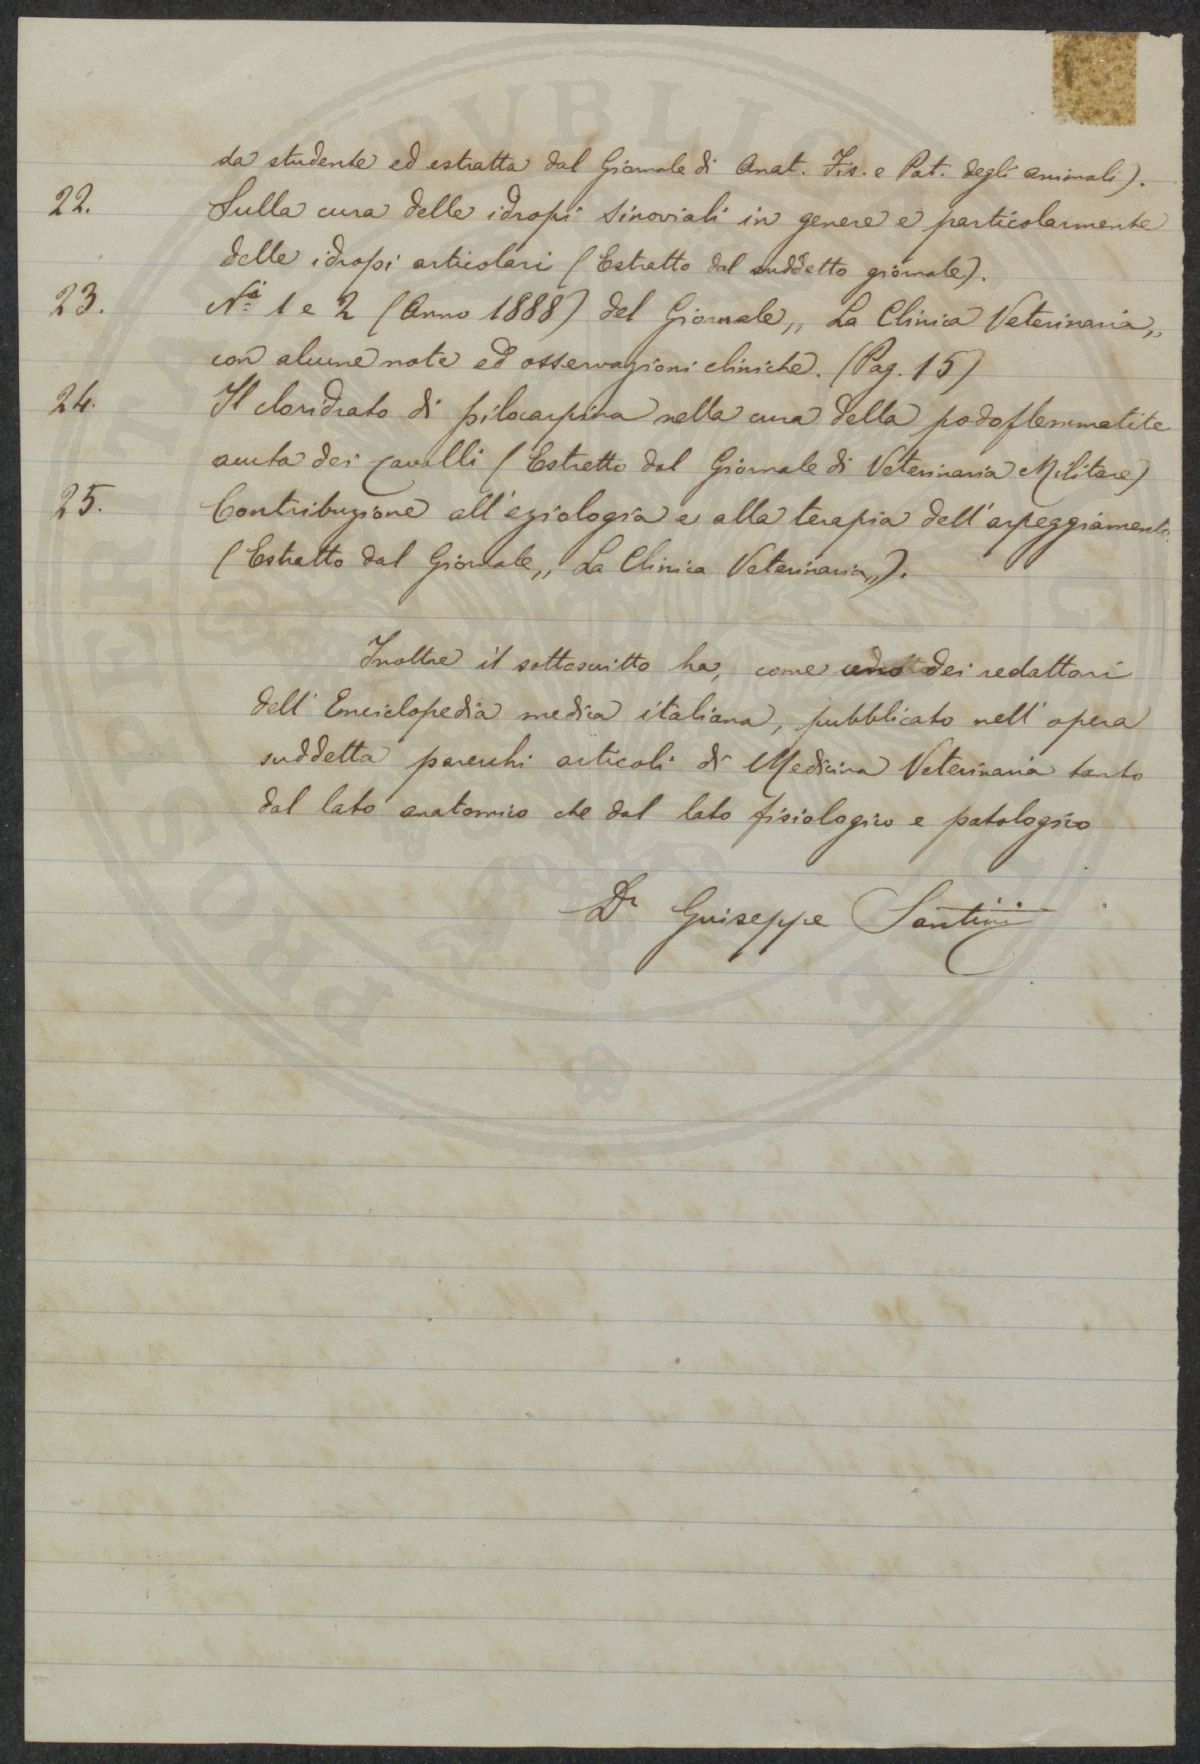 da studente ed estratta dal Giornale di Anat. Fis. e Pat. degli animali).
22. Sulla cura delle idropi sinoviali in genere e particolarmente
delle idropi articolari (Estratto dal suddetto giornale).
23. Ni 1 e 2 (Anno 1888) del Giornale „ La Clinica Veterinaria „
con alcune note ed osservazioni cliniche. (Pag. 15)
24. Il cloridrato di pilocarpina nella cura della podoflemmatite
acuta dei cavalli (Estratto dal Giornale di Veterinaria Militare)
25. Contribuzione all'eziologia e alla terapia dell'arpeggiamento.
(Estratto dal Giornale „ La Clinica Veterinaria „).
Inoltre il sottoscritto ha, come uno dei redattori
dell'Enciclopedia medica italiana, pubblicato nell'opera
suddetta parecchi articoli di Medicina Veterinaria tanto
dal lato anatomico che dal lato fisiologico e patologico
Dr Giuseppe Santini